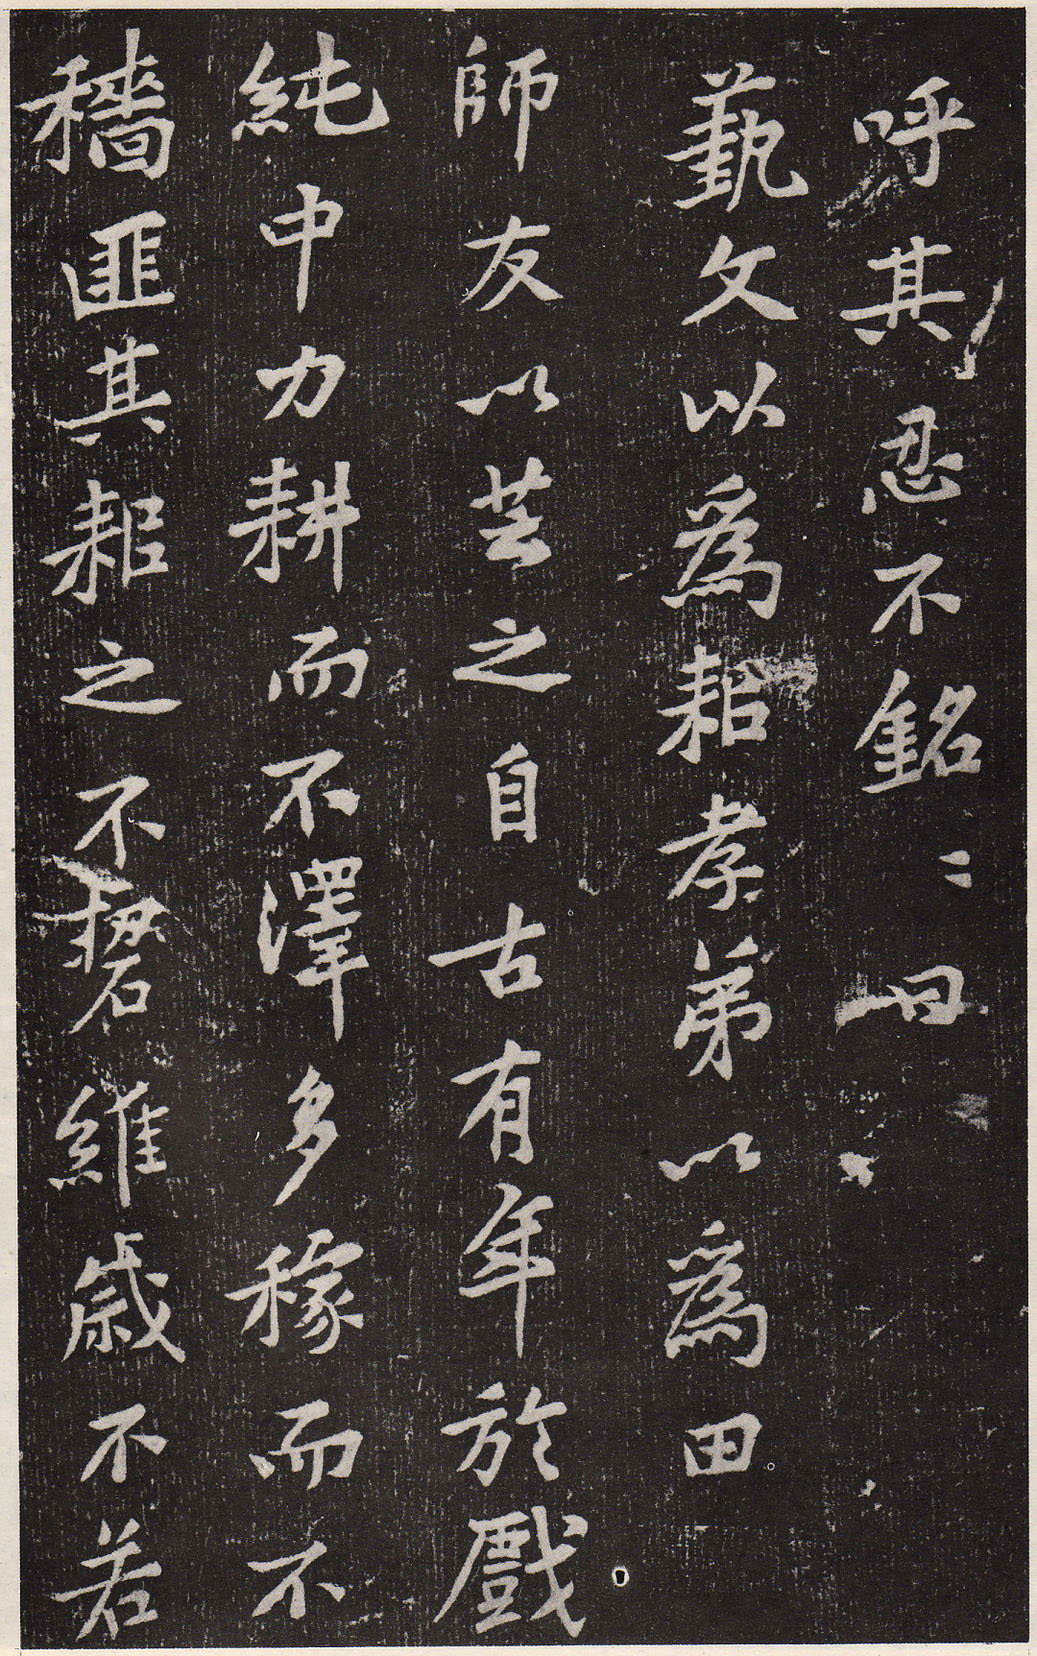 呼其忍不銘〻曰
蓺文以為耜孝弟以為田
師友以芸之自古有年於戲
純中力耕而不澤多稼而不
穡匪其耜之不䂮維歲不若